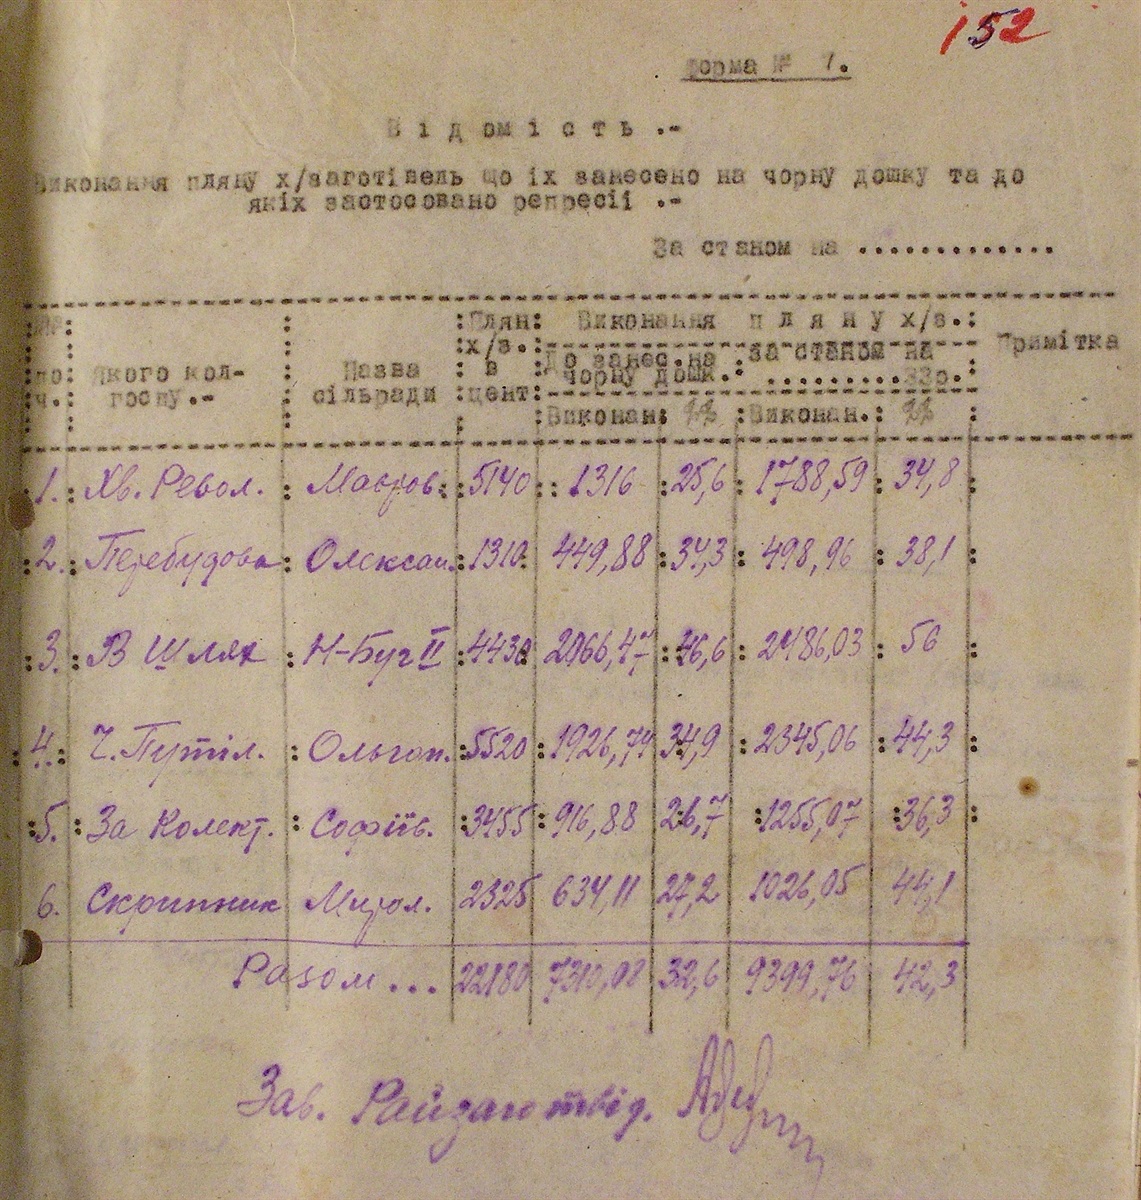 152
форма № 7.
Відомість .-
Виконання пляну х/заготівель що їх занесено на чорну дошку та до
якіх застосовано репресії .-
За станом на .............
№№ по ч. Якого кол-госпу.- Назва сільради Плян х/з. в цент. Виконання пляну х/з. Примітка
До занес.на чорну дошк. за станом на .........33р.
Виконан. %% Виконан. %%
1. Хв. Револ. Мавров. 5140 1316 25,6 1788,59 34,8
2. Перебудова Олександ. 1310 449,88 34,3 498,96 38,1
3. В Шлях Н-Буг II 4430 2066,47 46,6 2486,03 56
4. Ч. Путіл. Ольгоп. 5520 1926,74 34,9 2345,06 44,3
5. За Колект. Софіїв. 3455 916,88 26,7 1255,07 36,3
6. Скрипник Мирол. 2325 634,11 27,2 1026,05 44,1
Разом... 22180 7310,08 32,6 9399,76 42,3
Зав. Райзаготвід.